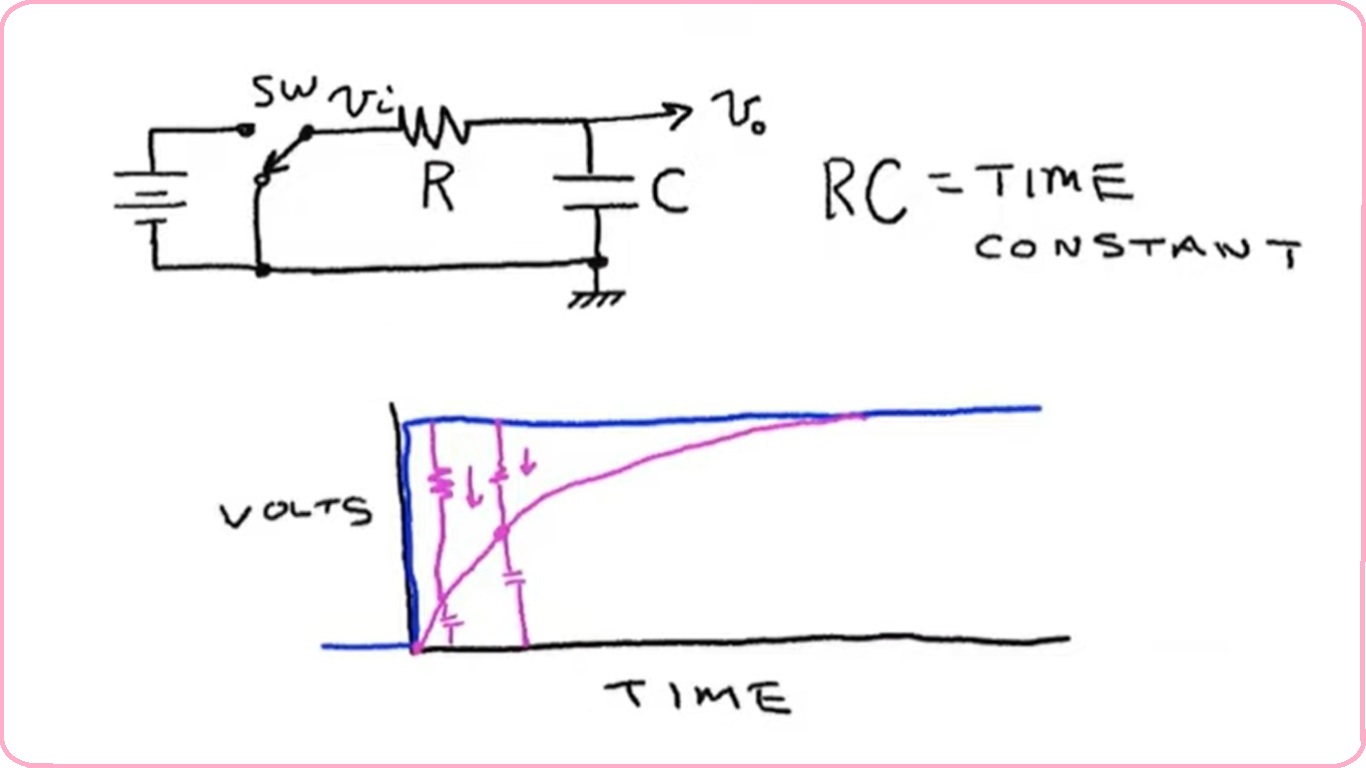 SW vi
vo
R
C
RC = TIME
CONSTANT
VOLTS
TIME